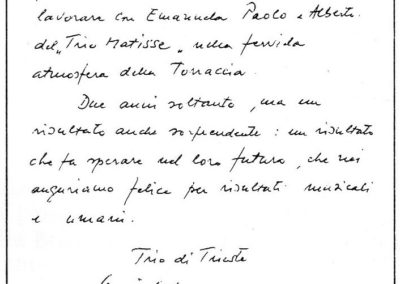 lavorare con Emanuela Paolo e Alberto
del „Trio Matisse„ nella fervida
atmosfera della Torraccia.
Due anni soltanto, ma un
risultato anche sorprendente: un risultato
che fa sperare nel loro futuro, che noi
auguriamo felice per risultati musicali
e umani.
Trio di Trieste